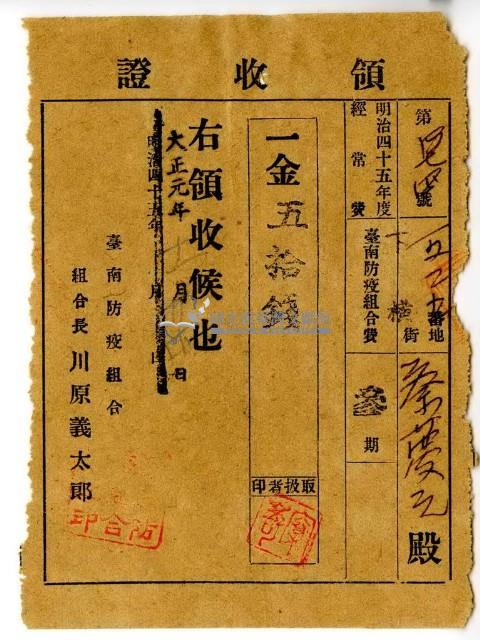 領收證
第 號
番地
下横街
蔡 殿
明治四十五年度
經常費
臺南防疫組合費
參期
一金五拾錢
取扱者印
右領收候也
大正元年 月 日
明治四十五年 月 日
臺南防疫組合
組合長川原義太郎